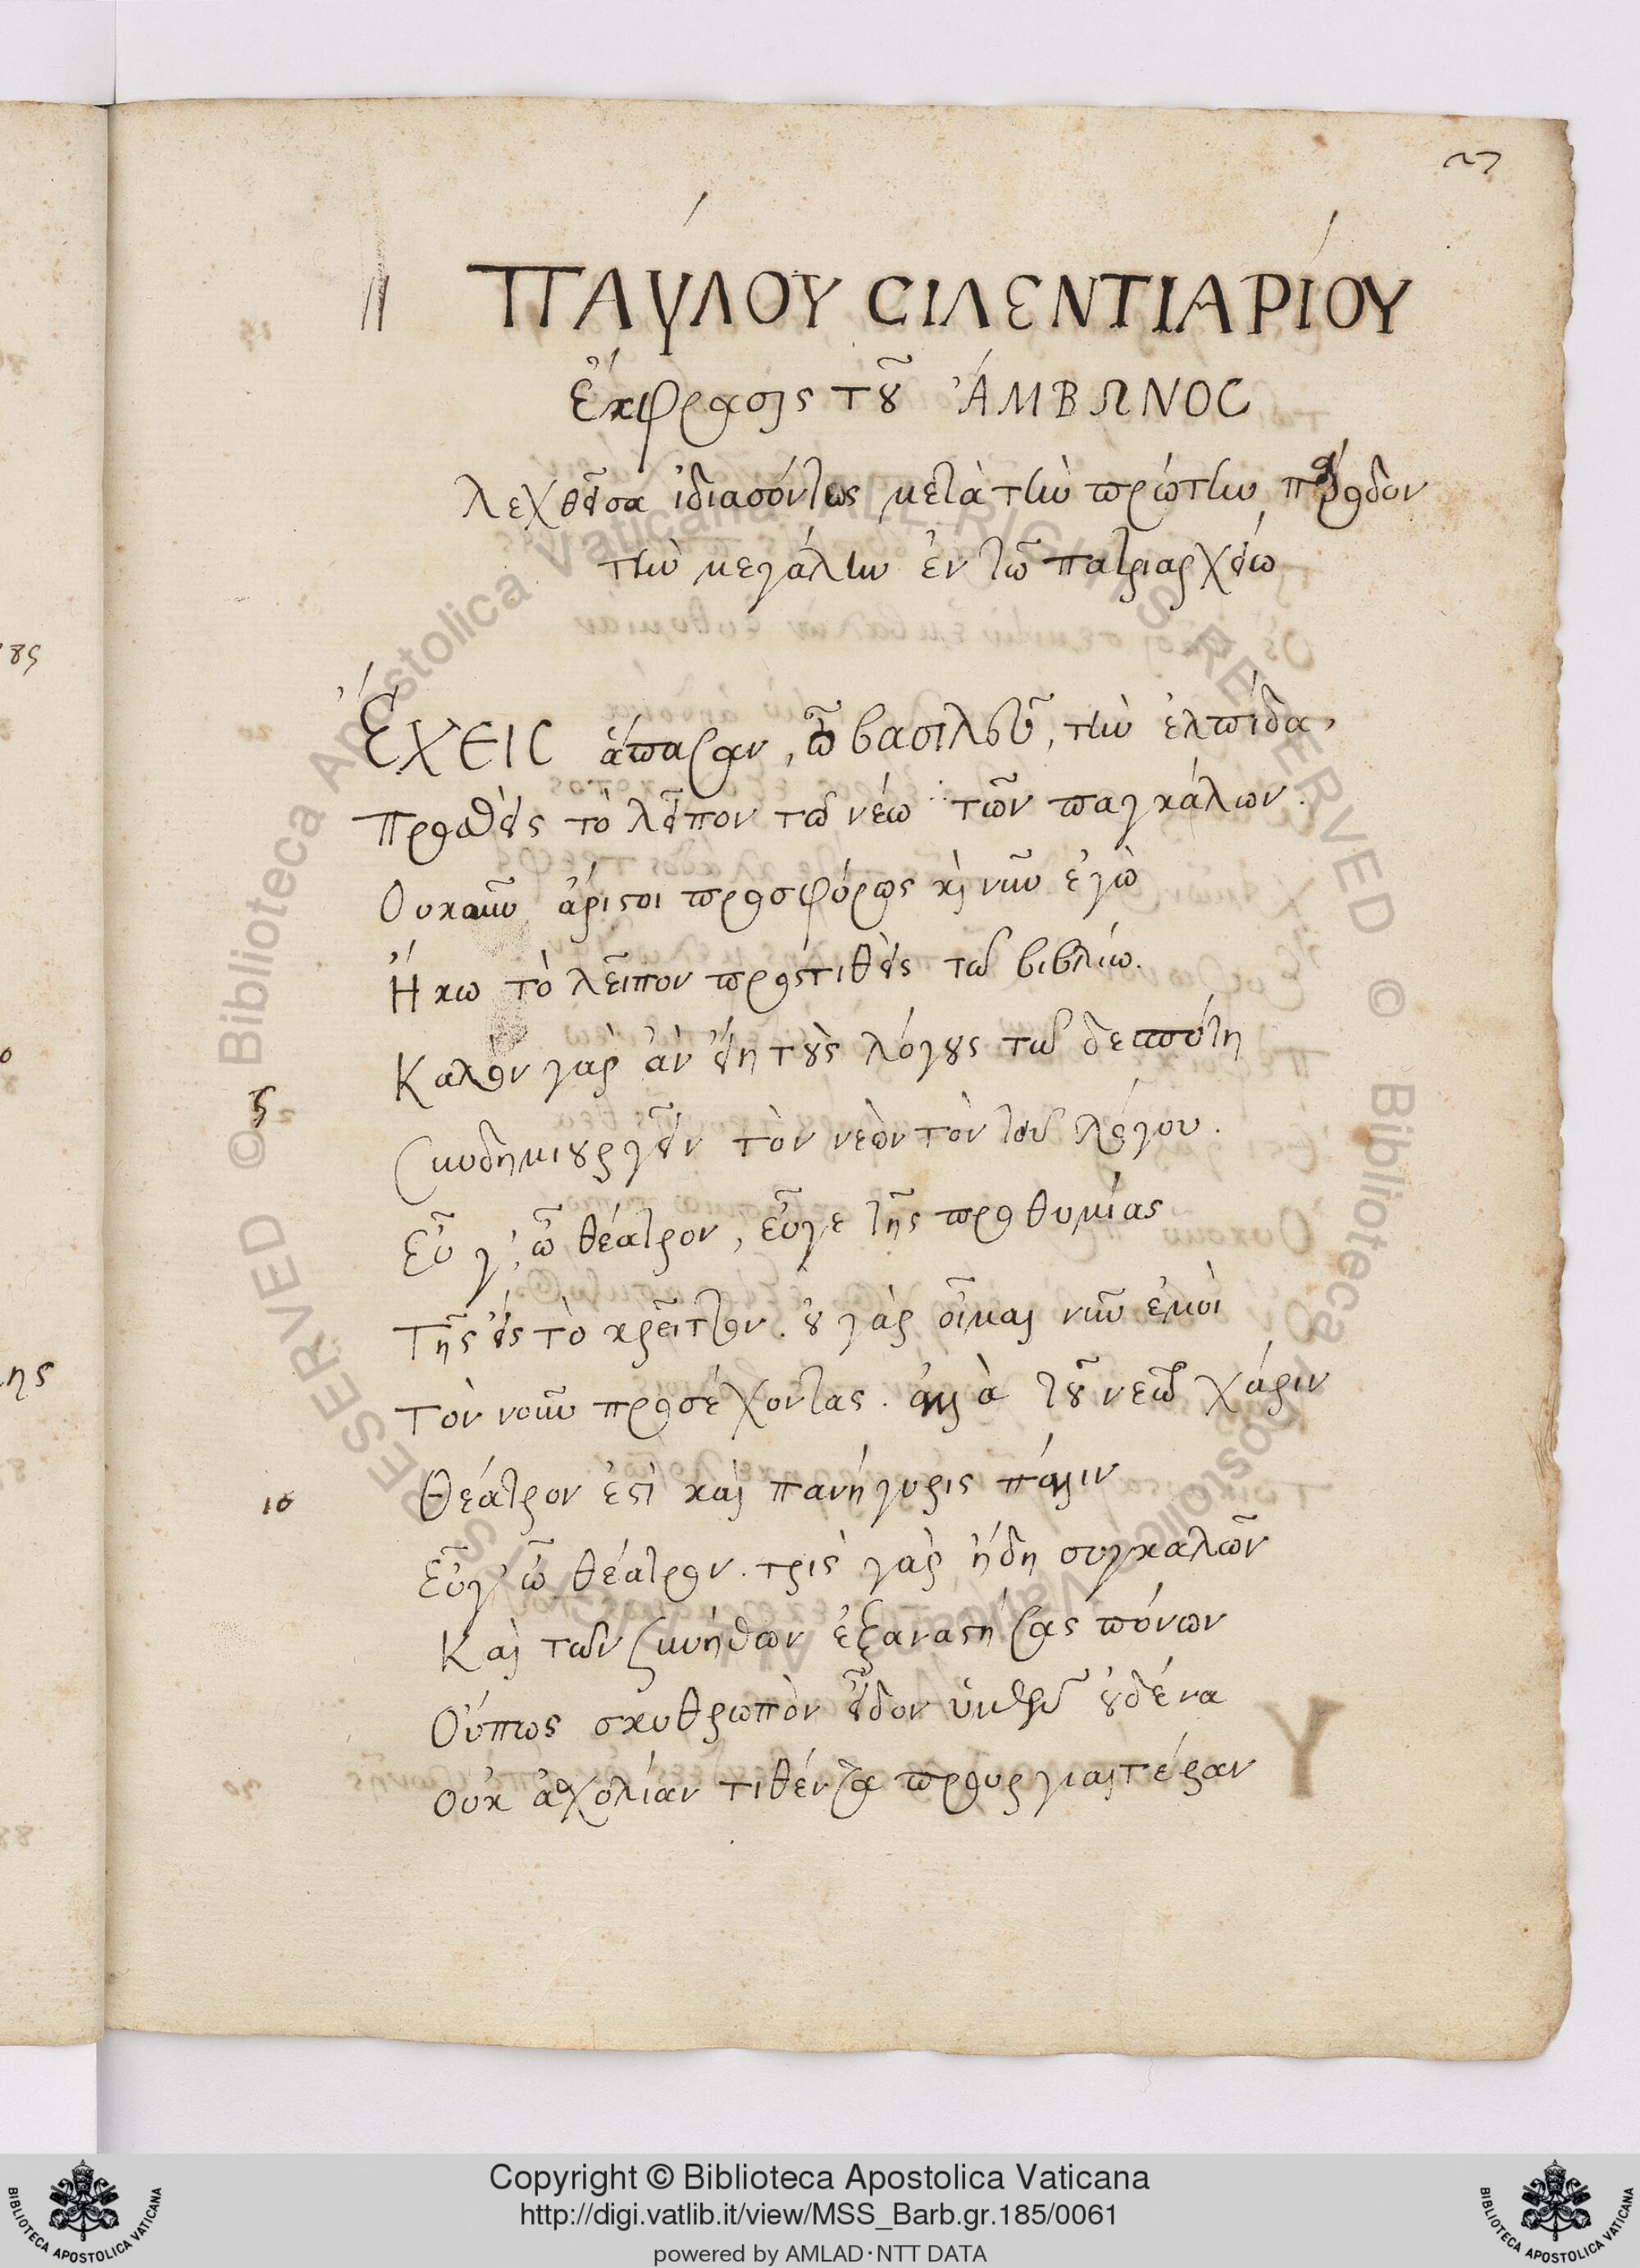 27
ΠΑΥΛΟΥ CΙΛΕΝΤΙΑΡΙΟΥ
Ἔκφρασις τοῦ ἌΜΒΩΝΟC
Λεχθεῖσα ἰδιαζόντως μετὰ τὴν πρώτην πάροδον
τὴν μεγάλην ἐν τῶ πατριαρχείω
ἜΧΕΙC ἅπασαν, ὦ βασιλεῦ, τὴν ἐλπίδα,
Προσθεὶς τὸ λεῖπον τῶ νέω τῶν παγκάλων.
Οὐκοῦν ἄριστοι προσφόρως καὶ νῦν ἐγὼ
Ἥκω τὸ λεῖπον προστιθεὶς τῶ βιβλίω.
Καλὸν γὰρ ἂν εἴη τοὺς λόγους τῶ δεσπότη
5
Συνδημιουργεῖν τὸν νεὼν τὸν τοῦ λόγου.
Εὖ γ', ὦ θέατρον, εὖγε τῆς προθυμίας
Τῆς εἰς τὸ κρεῖττον. οὐ γὰρ οἶμαι νῦν ἐμοὶ
Τὸν νοῦν προσέχοντας. ἀλλὰ τοῦ νεὼ χάριν
Θέατρόν ἐστι καὶ πανήγυρις πάλιν
10
Εὖγ' ὦ θέατρον. τρὶς γὰρ ἤδη συγκαλῶν
Καὶ τῶν συνήθων ἐξαναστήσας πόνων
Οὔπως σκυθρωπὸν εἶδον ὑμῶν οὐδένα
Οὐκ ἀσχολίαν τιθέντα προυργιαιτέραν
85
ης
© Biblioteca Apostolica Vaticana ALL RIGHTS RESERVED
Copyright © Biblioteca Apostolica Vaticana
http://digi.vatlib.it/view/MSS_Barb.gr.185/0061
powered by AMLAD·NTT DATA
BIBLIOTECA APOSTOLICA VATICANA
BIBLIOTECA APOSTOLICA VATICANA